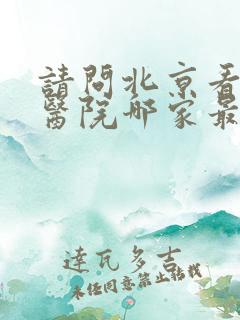 請問北京看
醫院哪家最
達瓦多吉
未經同意禁止轉載